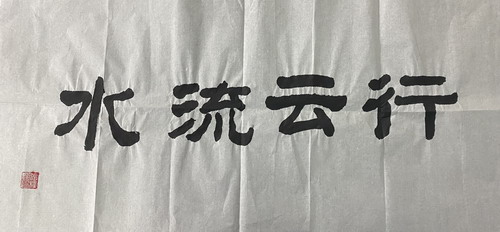 行云流水